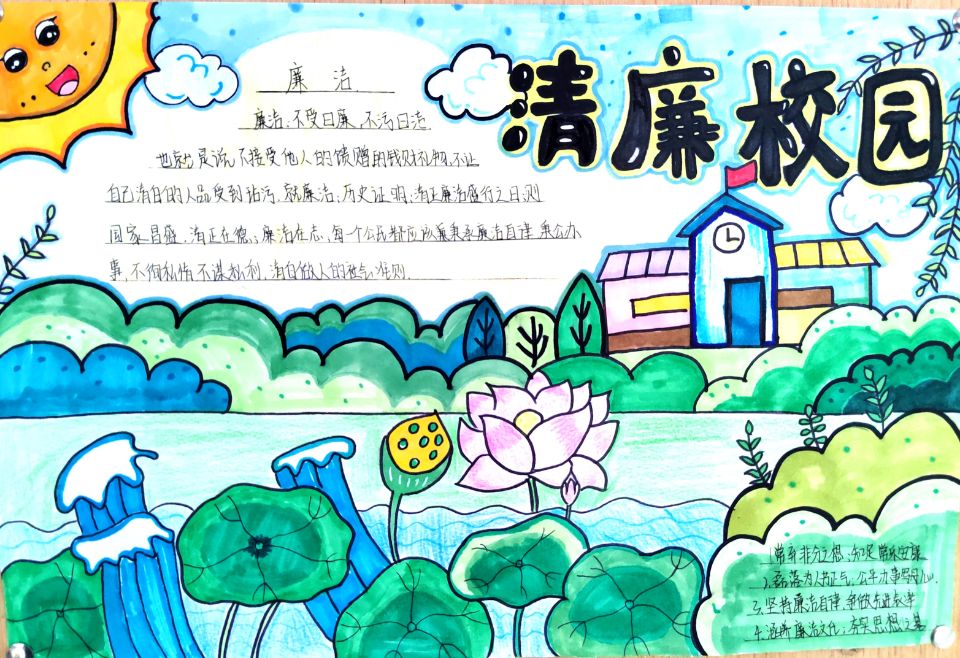 清廉校园
廉 洁
廉洁：不受曰廉，不污曰洁
也就是说，不接受他人的馈赠的钱财礼物，不让
自己清白的人品受到玷污，就廉洁；历史证明：清正廉洁盛行之日，则
国家昌盛，清正在德，廉洁在志，每个公民都应该秉承廉洁自律 秉公办
事，不徇私情 不谋私利，清白做人的 准则.
1. 常 非分之想，知足常乐
2. 为人 正气，公平办事
3. 坚持廉洁自律，争做先进
4. 廉洁文化，夯实思想之基